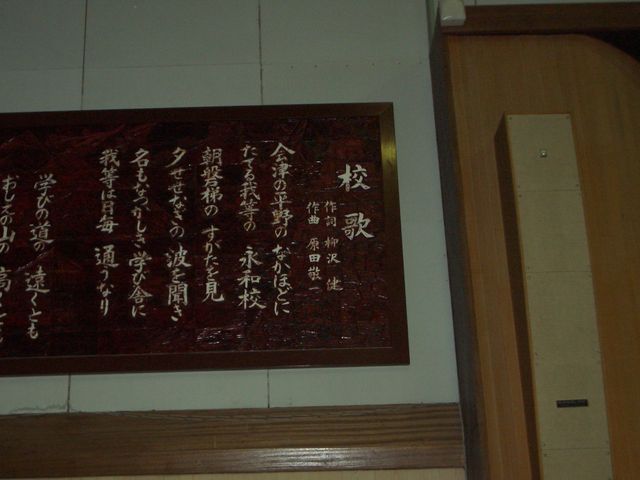 校歌
作詞 柳沢 健
作曲 原田敬一
会津の平野のなかほどに
たてる我等の 永和校
朝磐梯の すがたを見
夕せせなぎの 波を聞き
名もなつかしき 学び舎に
我等は日毎 通うなり
学びの道の 遠くとも